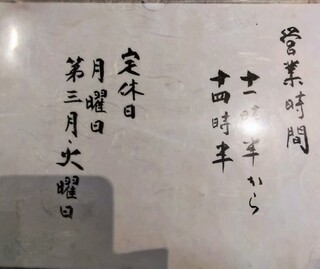 営業時間
十一時半から
十四時半
定休日
月曜日
第三月・火曜日